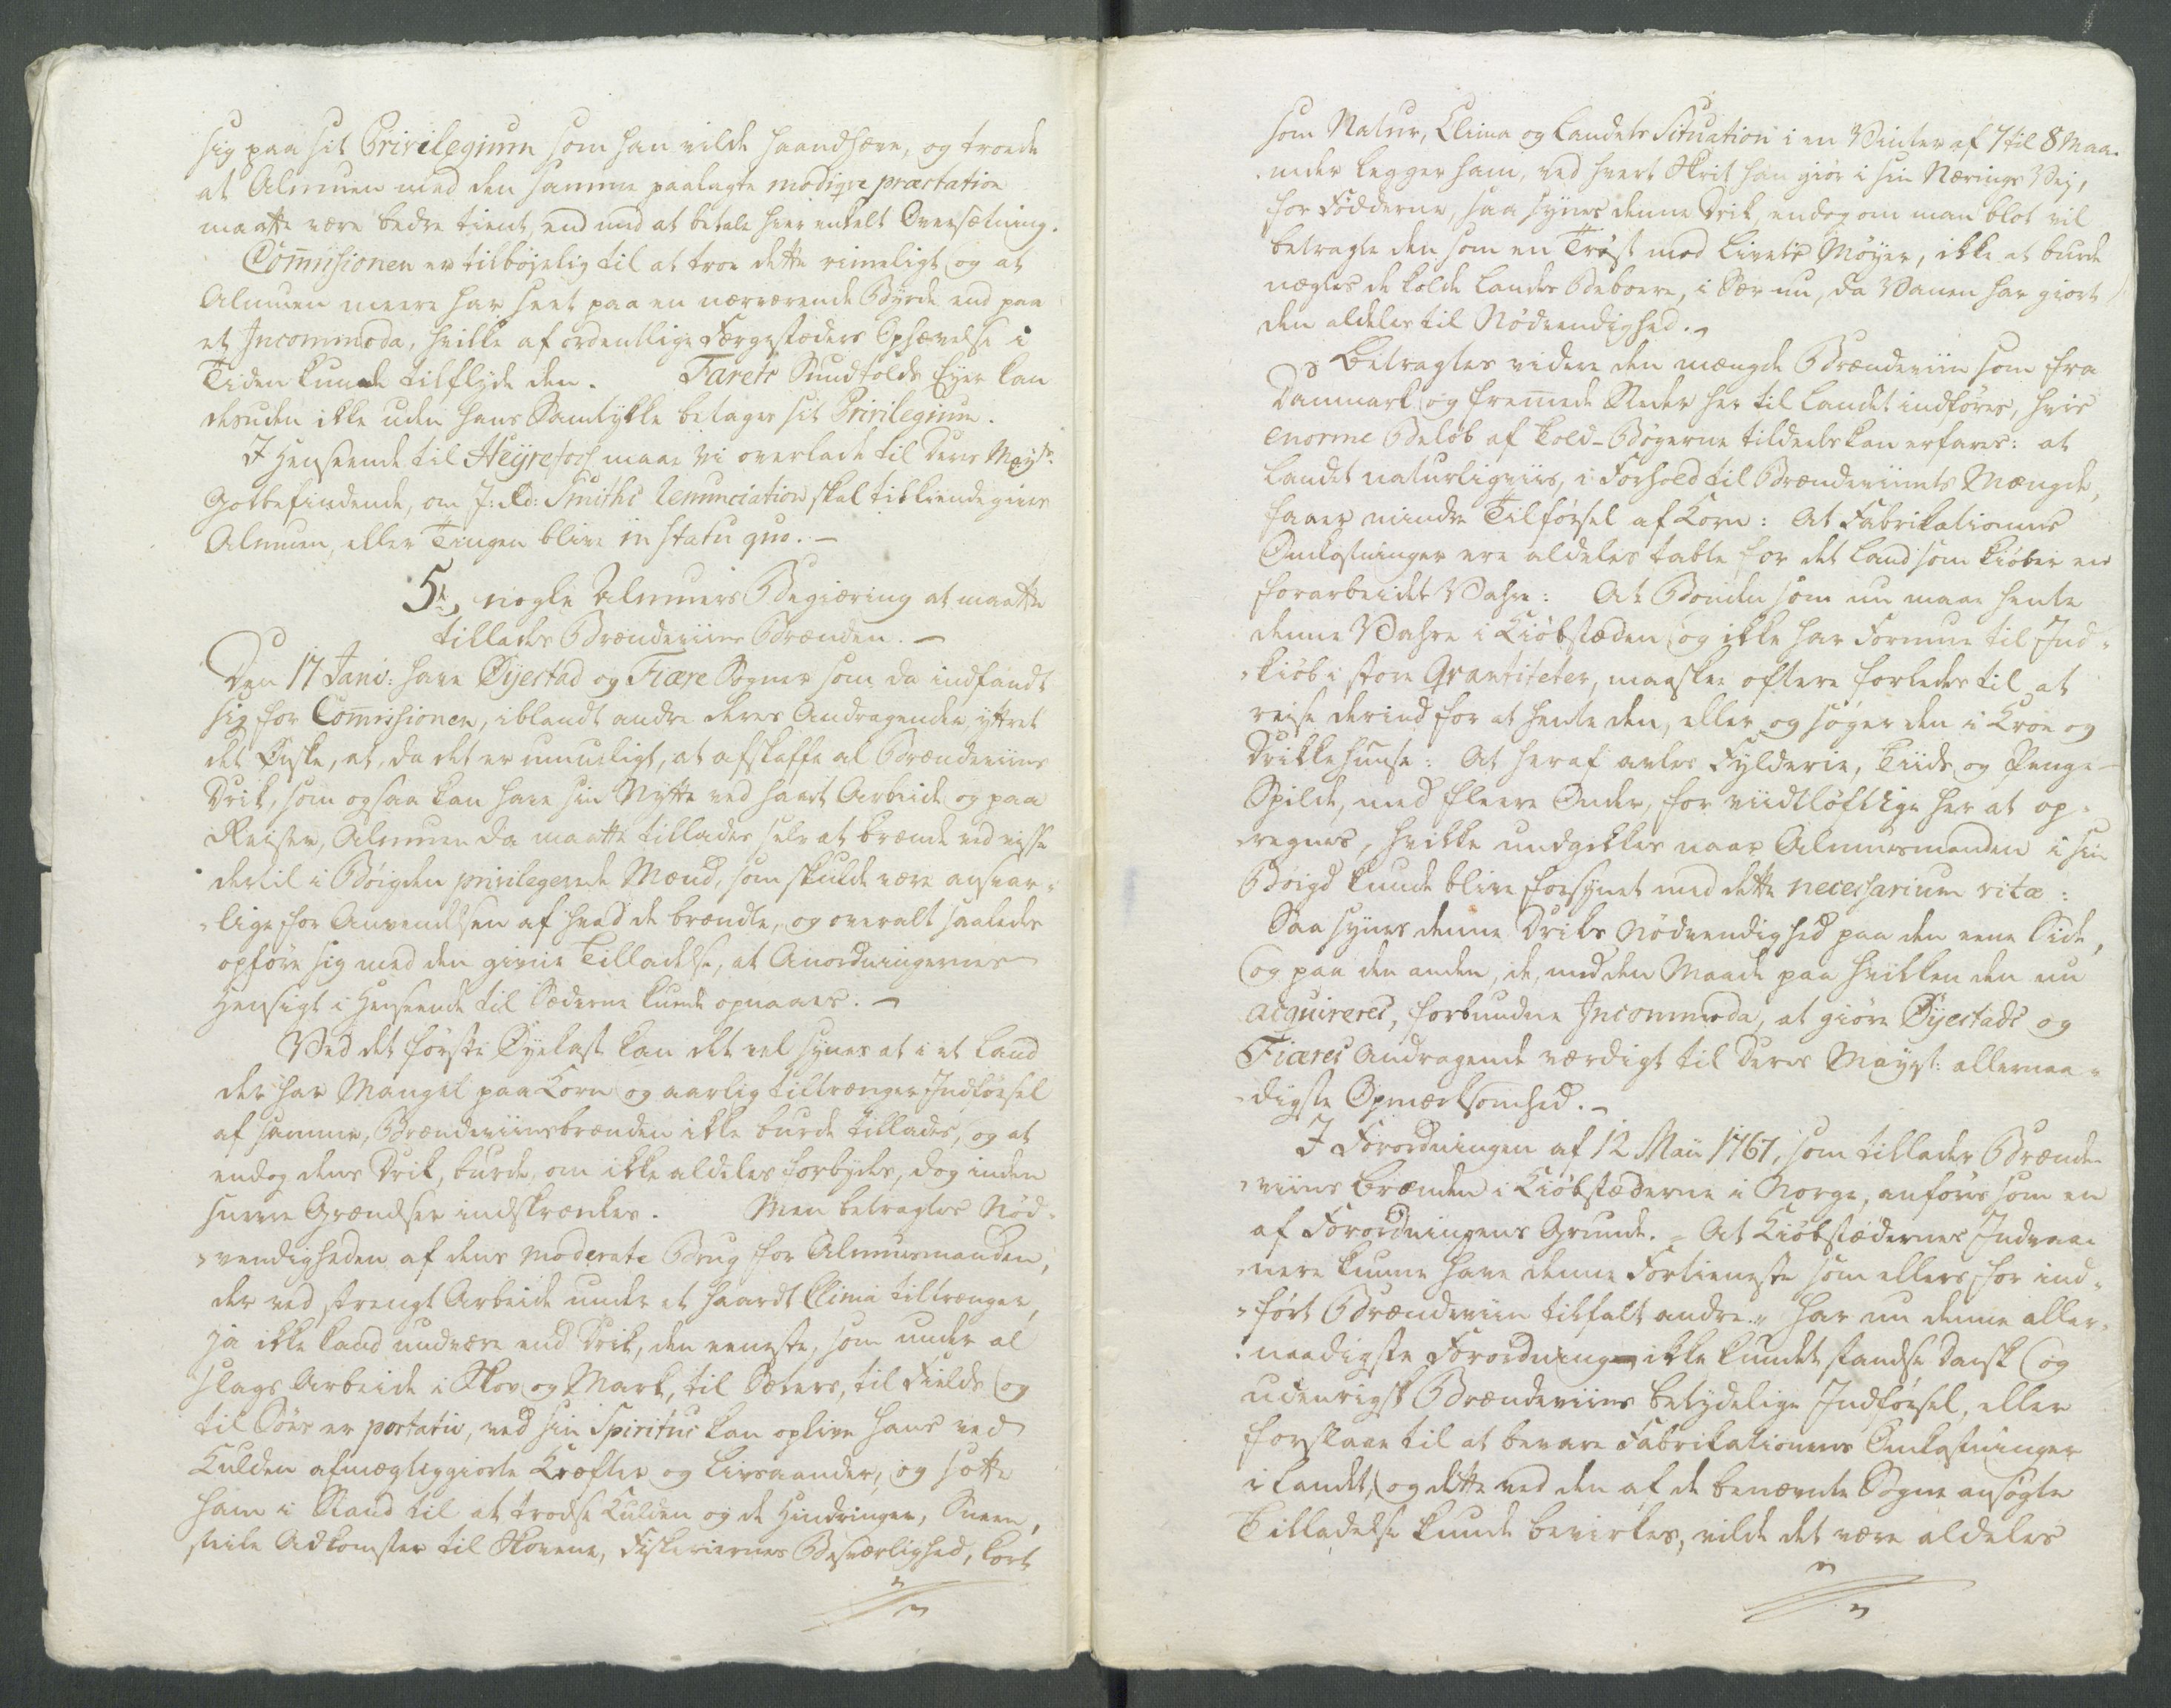 sig paa sit Privilegium som han vilde haandhæve, og troede
at Almuen med den samme paalagte modiqve præstation
maatte være bedre tient, end med at betale hver enkelt Oversætning.
Commissionen er tilbøjelig til at troe dette rimeligt og at
Almuen meere har seet paa en nærværende Byrde end paa
et Incommoda, hvilke af ordentlige Færgestæders Ophævelse i
Tiden kunde tilflyde den. Farets Sundfolds Eyer kan
desuden ikke uden hans Samtykke betages sit Privilegium.
I Henseende til Heyrefoss maae Vi overlade til Deres Mayts.
Gotbefindende, om J: Ad: Smiths Renunciation skal tilkiendegives
Almuen, eller Tingen blive in statu quo. –
5te, nogle Almuers Begiæring at maatte
tillades Brændeviins Brænden. –
Den 17 Juni: have Øyestad og Fiære Sogner som da indfandt
sig for Commissionen, iblandt andre deres Andragender, yttret
det Ønske, at, da det er umueligt, at afskaffe al Brændeviins
Drik, som ogsaa kan have sin Nytte ved haart Arbeide og paa
Reiser, Almuen da maatte tillades selv at brænde ved visse
dertil i Bøigden privilegerede Mænd, som skulde være ansvar-
lige for Anvendelsen af hvad de brændte, og overalt saaledes
opføre sig med den givne Tilladelse, at Anordningernes
Hensigt i Henseende til Sæderne kunde opnaaes. –
Ved det første Øyekast kan det vel synes at i et Land
der har Mangel paa Korn og aarlig tiltrænger Indførsel
af samme, Brændeviinsbrænden ikke burde tillades, og at
endog dens Drik, burde, om ikke aldeles forbydes, dog inden
snevre Grændser indskrænkes. Men betragtes Nød-
vendigheden af dens moderate Brug for Almuesmanden,
der ved strengt Arbeide under et haardt Clima tiltrænger,
ja ikke kand undvære end Drik, den eeneste, som under al
slags Arbeide i Skov og Mark, til Sæters, til Fields og
til Søes er portativ, ved sin Spiritus kan oplive hans ved
Kulden afmægtiggiorte Kræfter og Livsaander, og sætte
ham i Stand til at trodse Kulden og de Hindringer, Sneen,
steile Adkomster til Skovene, Fiskeriernes Besværlighed, kort
som Natur, Clima og Landets Situation i en Vinter af 7 til 8 Maa-
neder legger ham, ved hvert Skrit han giør i sin Nærings Vej,
for Fødderne, saa synes denne Drik, endog om man blot vil
betragte den som en Trøst mod Livets Møyer, ikke at burde
nægtes de kolde Landes Beboere, i Sær nu, da Vanen har giort
den aldeles til Nødvendighed. –
Betragtes videre den mængde Brændeviin som fra
Danmark og fremmede Steder her til Landet indføres, hvis
enorme Beløb af Told-Bøgerne tildeels kan erfares: at
Landet naturligviis, i Forhold til Brændeviinets Mængde,
faaer mindre Tilførsel af Korn: At Fabrikationens
Omkostninger ere aldeles tabte for det Land som kiøber en
forarbeidet Vahre: At Bonden som nu maae hente
denne Vahre i Kiøbstæden og ikke har Formue til Ind-
kiøb i store Qvantiteter, maaskee oftere forledes til at
reise derind for at hente den, eller og søger den i Kroe og
Drikkehuuse: At heraf avles Fylderie, Tiids og Penge-
Spilde, med fleere Onder, for viidtløftige her at op-
regnes, hvilke undgikkes naar Almuesmanden i sin
Boigd kunde blive forsynet med dette necessarium vitæ:
Saa synes denne Driks Nødvendighed paa den eene Side,
og paa den anden, de, med den Maade paa hvilken den nu
acquireres, forbundne Incommoda, at giøre Øyestads og
Fiæres Andragende værdigt til Deres Mayst: allernaa-
digste Opmærksomhed. –
I Forordningen af 12 Maii 1767, som tillader Brænde-
viins Brænden i Kiøbstæderne i Norge, anføres som en
af Forordningens Grunde. „At Kiøbstædernes Indvaa-
nere kunne have denne Fortieneste som ellers for ind-
ført Brændeviin tilfalt andre.“ Har nu denne aller-
naadigste Forordning ikke kundet standse Dansk og
udenrigsk Brændeviins betydelige Indførsel, eller
forslaae til at bevare Fabrikationens Omkostninger
i Landet, og dette ved den af de benævnte Sogne ansøgte
Tilladelse kunde bevirkes, vilde det være aldeles